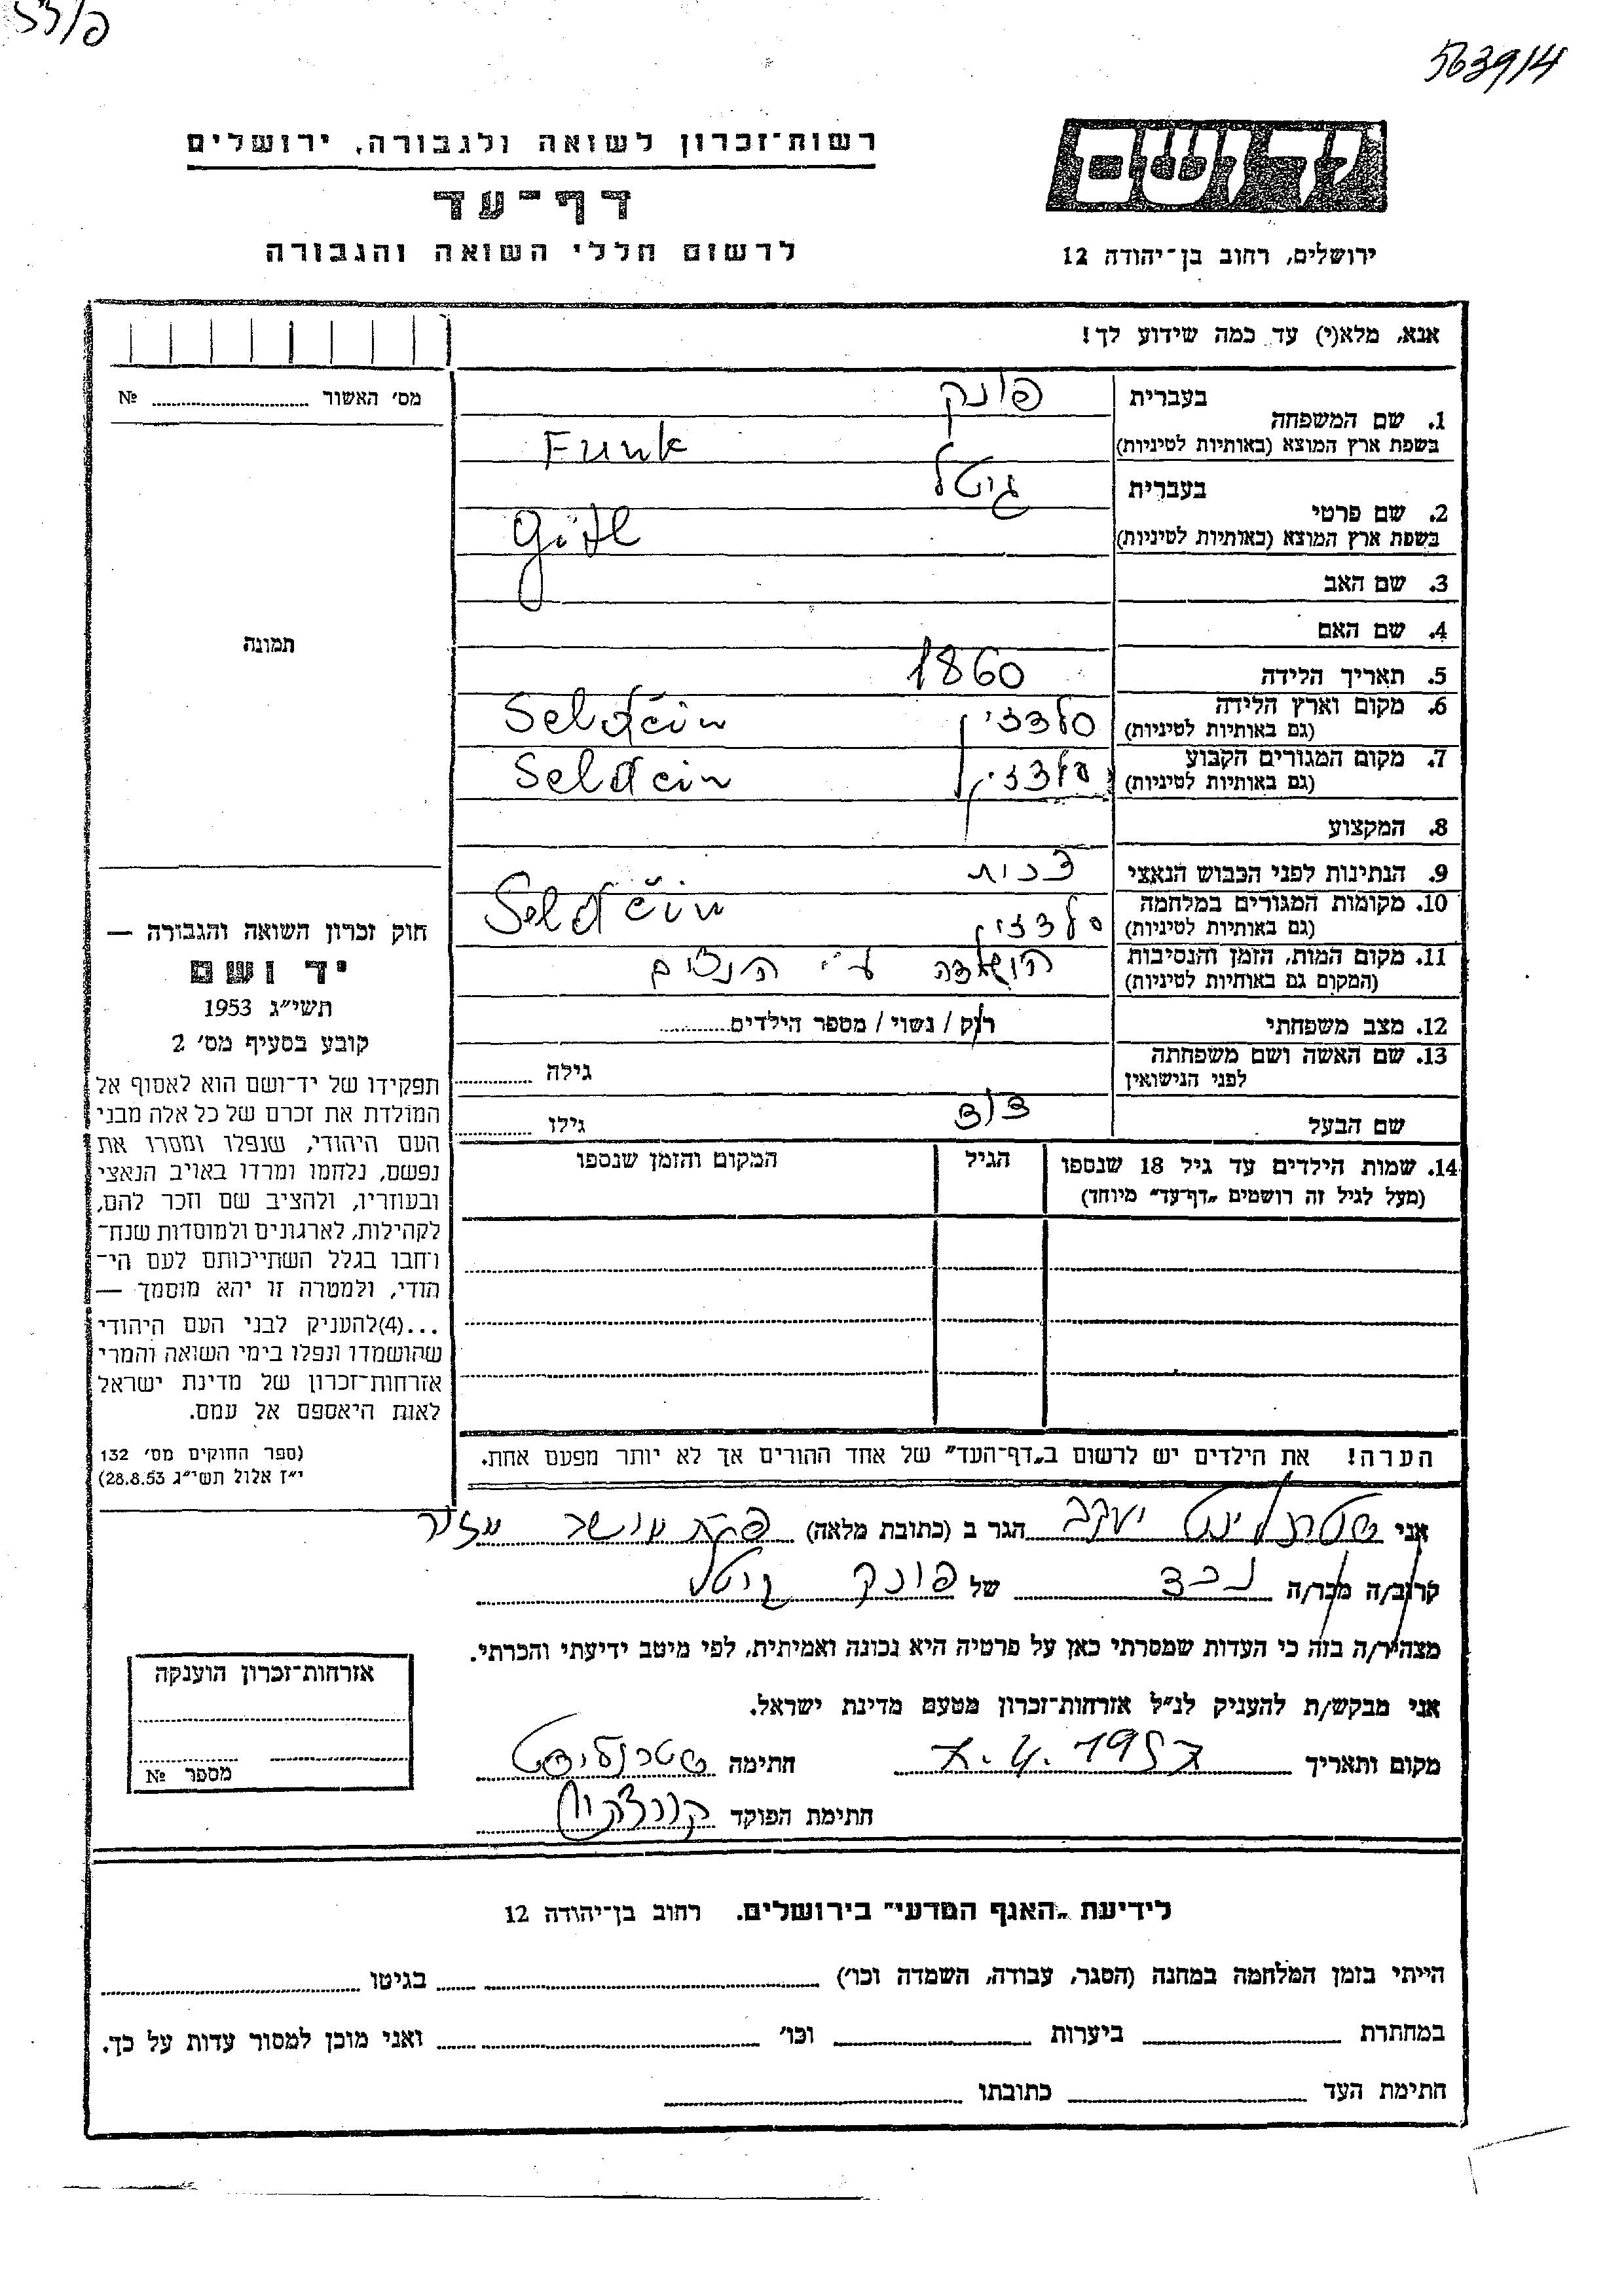 פ/דל
563914
רשות־זכרון לשואה ולגבורה, ירושלים
דף־עד
לרשום חללי השואה והגבורה
יד ושם
ירושלים, רחוב בן־יהודה 12
אנא, מלא(י) עד כמה שידוע לך!
מס׳ האשור № 
תמונה
1. שם המשפחה בעברית פונק
בשפת ארץ המוצא (באותיות לטיניות) Funk
2. שם פרטי בעברית גיטל
בשפת ארץ המוצא (באותיות לטיניות) Gitl
3. שם האב
4. שם האם
5. תאריך הלידה 1860
6. מקום וארץ הלידה
(גם באותיות לטיניות) סלדצין
7. מקום המגורים הקבוע
(גם באותיות לטיניות) סלדצין
8. המקצוע
9. הנתינות לפני הכבוש הנאצי
10. מקומות המגורים במלחמה
(גם באותיות לטיניות)
11. מקום המות, הזמן והנסיבות
(המקום גם באותיות לטיניות) הושמדה ע״י הנצים
12. מצב משפחתי רוק / נשוי / מספר הילדים
13. שם האשה ושם משפחתה
לפני הנישואין גילה
שם הבעל דוד גילו
14. שמות הילדים עד גיל 18 שנספו הגיל המקום והזמן שנספו
(מעל לגיל זה רושמים „דף־עד״ מיוחד)
הערה! את הילדים יש לרשום ב„דף־העד״ של אחד ההורים אך לא יותר מפעם אחת.
חוק זכרון השואה והגבורה —
יד ושם
תשי״ג 1953
קובע בסעיף מס׳ 2
תפקידו של יד־ושם הוא לאסוף אל
המולדת את זכרם של כל אלה מבני
העם היהודי, שנפלו ומסרו את
נפשם, נלחמו ומרדו באויב הנאצי
ובעוזריו, ולהציב שם וזכר להם,
לקהילות, לארגונים ולמוסדות שנח־
רבו בגלל השתייכותם לעם הי־
הודי, ולמטרה זו יהא מוסמך —
...(4) להעניק לבני העם היהודי
שהושמדו ונפלו בימי השואה והמרי
אזרחות־זכרון של מדינת ישראל
לאות היאספם אל עמם.
(ספר החוקים מס׳ 132
י״ז אלול תשי״ג 28.8.53)
אני שטרנליכט יעקב הגר ב (כתובת מלאה)
קרוב/ה מכר/ה נכד של פונק גיטל
מצהיר/ה בזה כי העדות שמסרתי כאן על פרטיה היא נכונה ואמיתית, לפי מיטב ידיעתי והכרתי.
אני מבקש/ת להעניק לנ״ל אזרחות־זכרון מטעם מדינת ישראל.
מקום ותאריך 7.4.1957 חתימה שטרנליכט
חתימת הפוקד
אזרחות־זכרון הוענקה
מספר №
לידיעת „האגף המדעי״ בירושלים. רחוב בן־יהודה 12
הייתי בזמן המלחמה במחנה (הסגר, עבודה, השמדה וכו׳) בגיטו
במחתרת ביערות וכו׳ ואני מוכן למסור עדות על כך.
חתימת העד כתובתו